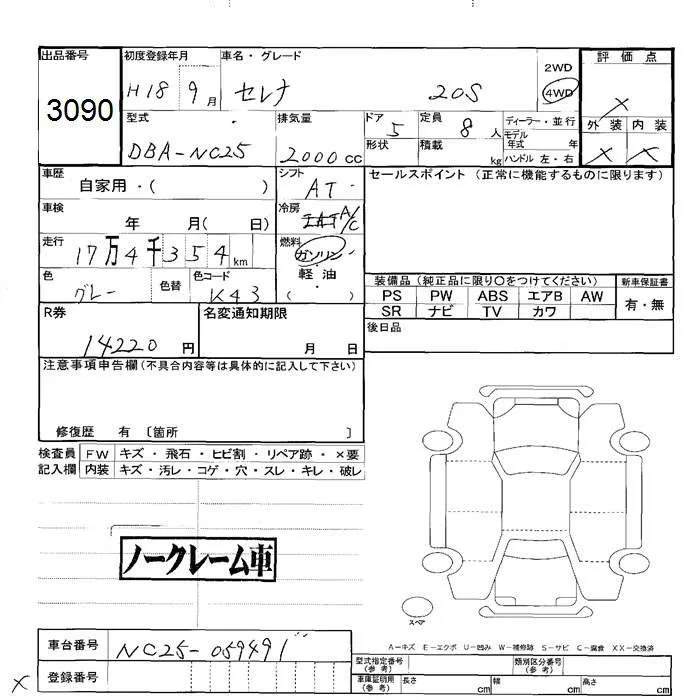 出品番号 初度登録年月 車名・グレード 評価点
3090 H18 9月 セレナ 20S 2WD 4WD X
型式 排気量 ドア 定員 ディーラー・並行 外装 内装
DBA-NC25 2000cc 5 8人 モデル年式 年 X X
形状 積載 kg ハンドル 左・右
車歴 シフト セールスポイント (正常に機能するものに限ります)
自家用・( ) AT
車検 冷房
年 月( 日) A/C
走行 燃料
17万4千354km ガソリン
色 色替 色コード 軽油
グレー K43 ( )
装備品 (純正品に限り〇をつけてください) 新車保証書
PS PW ABS エアB AW 有・無
SR ナビ TV カワ
R券 名変通知期限 後日品
14220円 月 日
注意事項申告欄 (不具合内容等は具体的に記入して下さい)
修復歴 有 〔箇所 〕
検査員 FW キズ・飛石・ヒビ割・リペア跡・×要
記入欄 内装 キズ・汚レ・コゲ・穴・スレ・キレ・破レ
ノークレーム車
スペア
A-キズ E-エクボ U-凹み W-補修跡 S-サビ C-腐食 XX-交換済
車台番号 NC25-059491
型式指定番号(参考) 類別区分番号(参考)
X 登録番号
車庫証明用(参考) 長さ cm 幅 cm 高さ cm